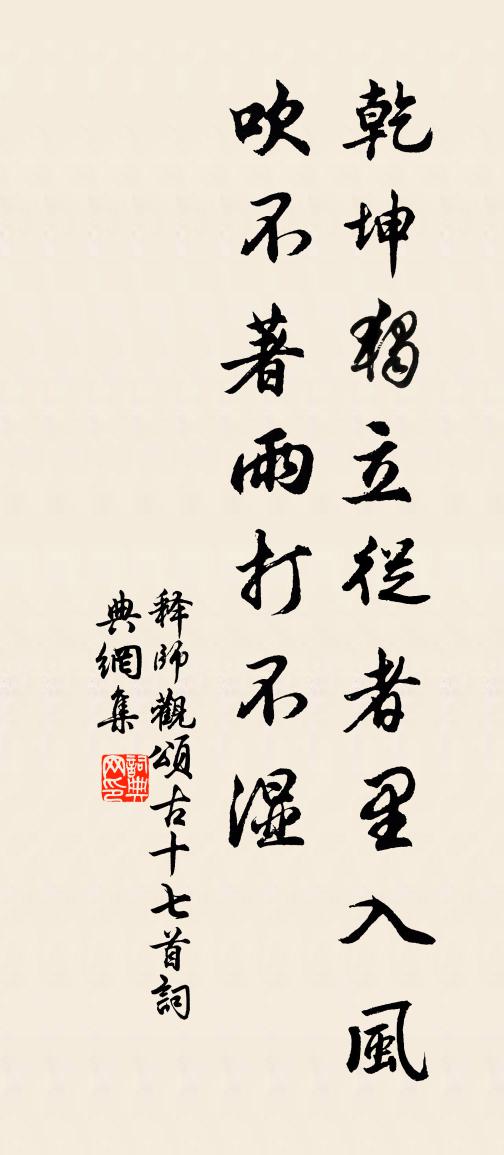 乾坤獨立從者里入風
吹不著雨打不湿
释師觀頌古十七首詞
典網集
詞典
网印